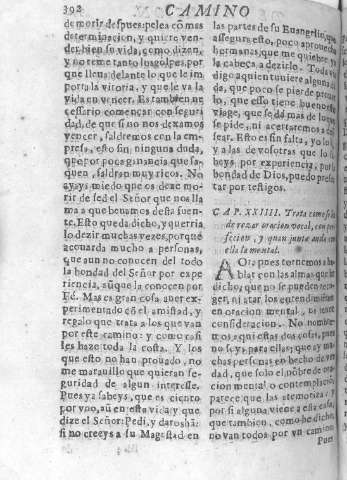 392 CAMINO
de morir despues: pelea cõ mas
determinacion, y quiere ven-
der bien su vida, como dizen,
y no teme tanto los golpes, por
que lleua delante lo que le im
porta la vitoria, y que le va la
vida en vencer. Es tambien ne
cessario començar con seguri
dad, de que si no nos dexamos
vencer, saldremos con la em-
presa, esto sin ninguna duda,
que por poca ganancia que sa-
quen, saldran muy ricos. No
ayays miedo que os dexe mo-
rir de sed el Señor que nos lla
ma a que beuamos desta fuen-
te. Esto queda dicho, y querria
lo dezir muchas vezes, porque
acouarda mucho a personas,
que aun no conocen del todo
la bondad del Señor por expe
riencia, aũque la conocen por
Fè. Mas es gran cosa auer ex-
perimentado cõ el amistad, y
regalo que trata a los que van
por este camino: y como casi
les haze toda la costa. Y los
que esto no han prouado, no
me marauillo que quieran se-
guridad de algun interesse.
Pues ya sabeys, que es ciento
por vno, aũ en esta vida y que
dize el Señor: Pedi, y daroshã:
si no creeys a su Magestad en
las partes de su Euangelio, que
assegura esto, poco aprouecha
hermanas, que me quiebre yo
la cabeça a dezirlo. Toda via
digo a quien tuuiere alguna du
da, que poco se pierde en prouar
lo, que esso tiene bueno este
viage, que se dà mas de lo que
se pide, ni acertaremos a des-
sear. Esto es sin falta, yo lo sè,
y a las de vosotras que lo sa-
beys por experiencia, por la
bondad de Dios, puedo presen
tar por testigos.
CAP. XXIIII. Trata como se ha
de rezar oracion vocal, con per-
feccion, y quan junta anda con
ella la mental.
AOra pues tornemos a ha-
blar con las almas que he
dicho, que no se pueden reco-
ger, ni atar los entendimiẽtos
en oracion mental, ni tener
consideracion. No nombre-
mos aqui estas dos cosas, pues
no soys para ellas; que ay mu-
chas personas en hecho de ver
dad, que solo el nõbre de ora-
cion mental o contemplacion
parece que las atemoriza: y
por si alguna viene a esta casa,
que tambien, como he dicho,
no van todos por vn camino
Pues